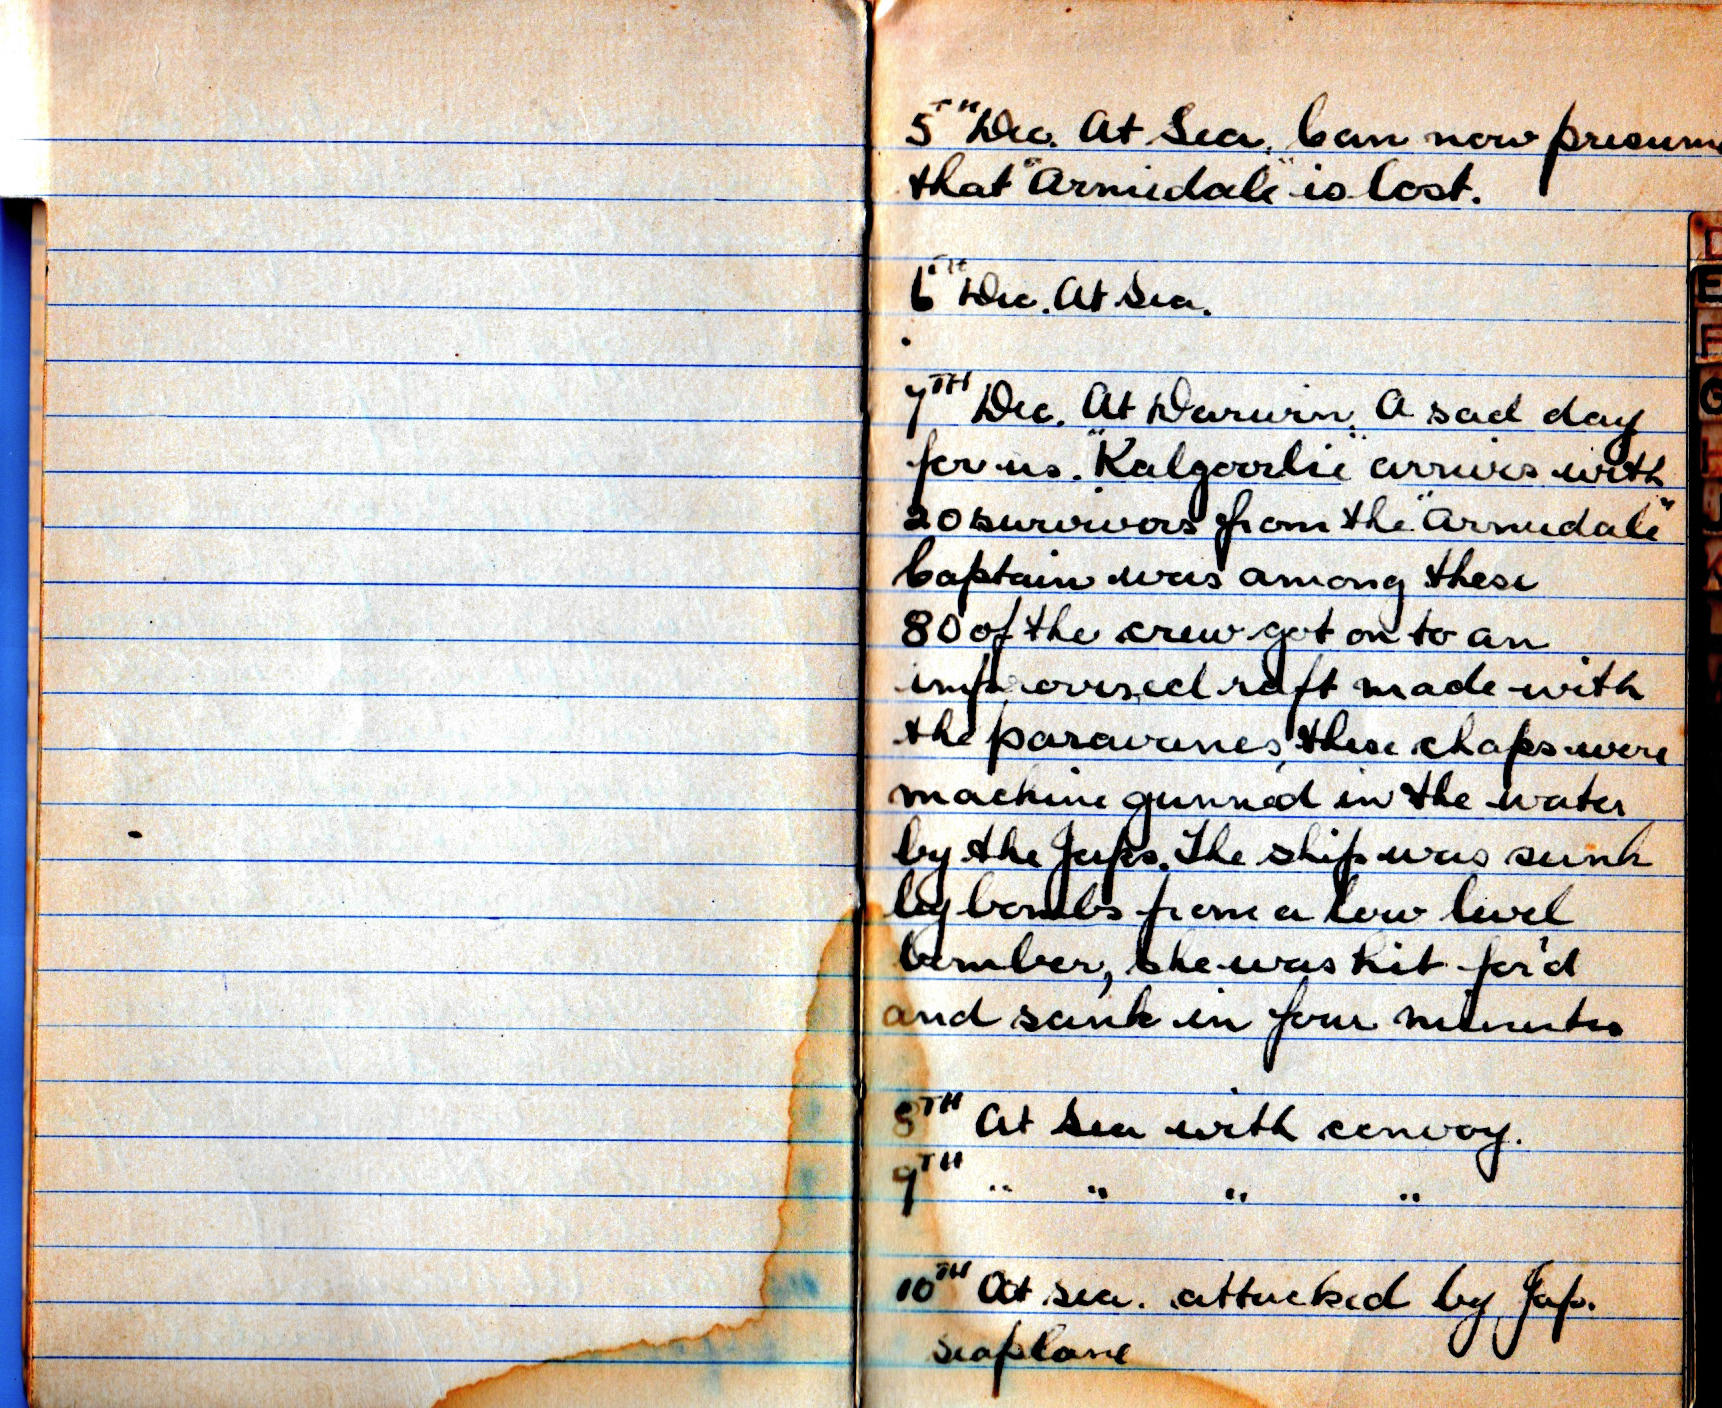 5TH Dec. At Sea. Can now presume
that "Armidale" is lost.
6TH Dec. At Sea.
7TH Dec. At Darwin. A sad day
for us. "Kalgoorlie" arrives with
20 survivors from the "Armidale"
Captain was among these
80 of the crew got on to an
improvised raft made with
the paravanes, these chaps were
machine gunned in the water
by the Japs. The ship was sunk
by bombs from a low level
bomber, she was hit for'd
and sank in four minutes
8TH At Sea with convoy.
9TH " " " "
10TH At sea. attacked by Jap.
seaplane
E
F
G
K